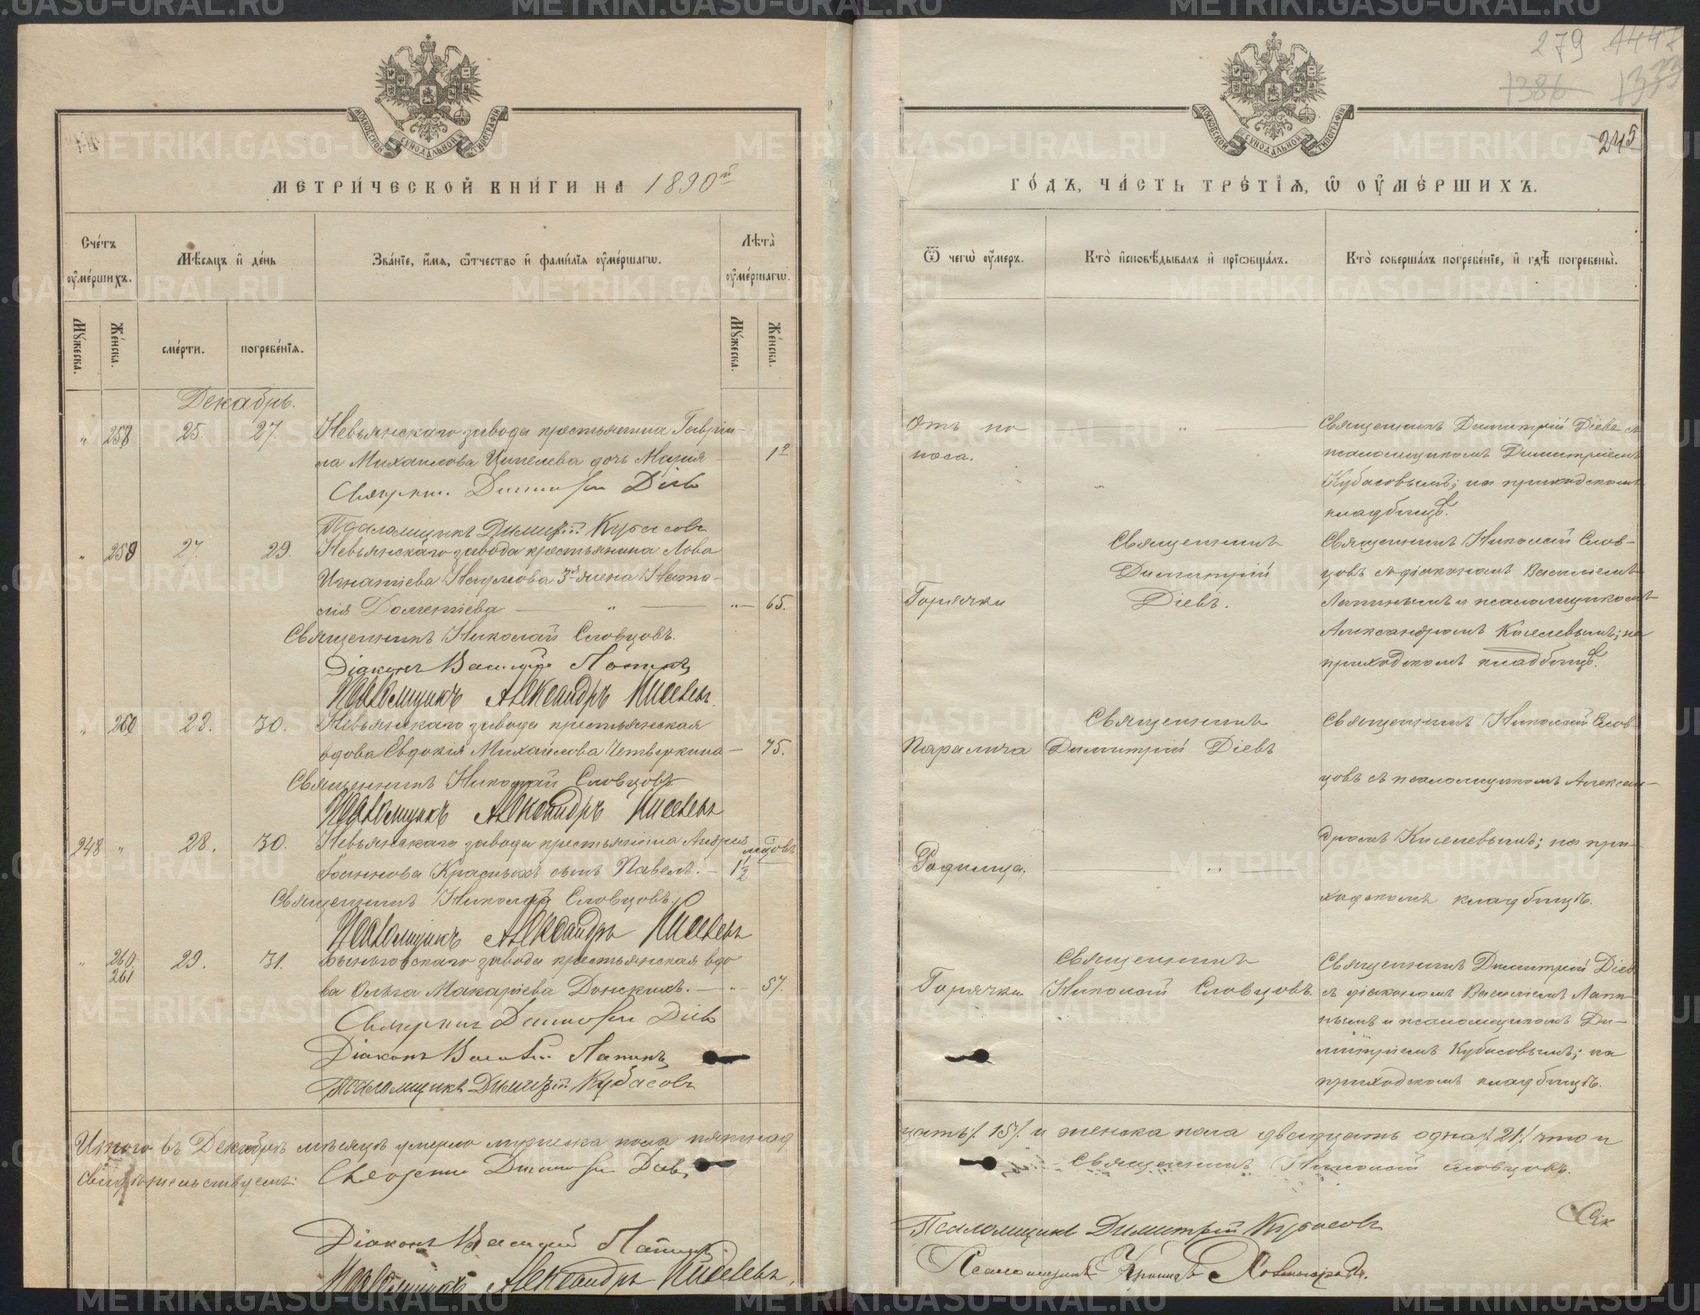 279
1386
245
МЕТРИ́ЧЕСКОЙ КНИ́ГИ НА 1890й
Сче́тъ оу҆ме́ршихъ.
Мꙋ́жеска.
Же́нска.
Мѣ́сяцъ и҆ де́нь
сме́рти.
погребе́нїя.
Зва́нїе, и҆́мя, ѻ҆́тчество и҆ фами́лїя оу҆ме́ршагѡ.
Лѣ́та оу҆ме́ршагѡ.
Мꙋ́жеска.
Же́нска.
Декабрь.
" 258 25. 27. Невьянскаго завода крестьянина Гаврiи-
ла Михаилова Ципелева дочь Марiя — 1г
Священникъ Димитрiй Дiевъ
Псаломщикъ Димитрiй Кубасовъ
" 259 27. 29. Невьянскаго завода крестьянина Лова
Игнатiева Наумова 3я жена Наста-
сiя Дометiева — " — "— 65.
Священникъ Николай Словцовъ.
Дiаконъ Василiй Лапинъ
Псаломщикъ Александръ Киселевъ.
" 260 28. 30. Невьянскаго завода крестьянская
вдова Евдокiя Михайлова Четверкина — 75.
Священникъ Николай Словцовъ
Псаломщикъ Александръ Киселевъ
248 " 28. 30. Невьянскаго завода крестьянина Андрея
Iоаннова Красныхъ сынъ Павелъ. — 1½
Священникъ Николай Словцовъ
Псаломщикъ Александръ Киселевъ
" 260 261 29. 31. завода крестьянская вдо
ва Ольга Макарiева Донскихъ. — " 57.
Священникъ Димитрiй Дiевъ
Дiаконъ Василiй Лапинъ
Псаломщикъ Димитрiй Кубасовъ
Итого въ Декабрѣ мѣсяцѣ умерло мужеска пола пятнад
свидѣтельствуемъ: Священникъ Димитрiй Дiевъ,
Дiаконъ Василiй Лапинъ
Псаломщикъ Александръ Киселевъ,
ГО́ДЪ, ЧА́СТЬ ТРЕ́ТЇѦ, Ѡ҆ ОУ҆МЕ́РШИХЪ.
Ѿ чегѡ̀ оу҆́меръ.
Кто̀ и҆сповѣ́дывалъ и҆ прїѡбща́лъ.
Кто̀ соверша́лъ погребе́нїе, и҆ гдѣ̀ погребены̀.
Отъ по
носа.
— " —
Священникъ Димитрiй Дiевъ съ
псаломщикомъ Димитрiемъ
Кубасовымъ; на приходскомъ
кладбищѣ.
Горячки
Священникъ
Димитрiй
Дiевъ.
Священникъ Николай Слов-
цовъ съ дiакономъ Василiемъ
Лапинымъ и псаломщикомъ
Александромъ Киселевымъ; на
приходскомъ кладбищѣ.
Паралича
Священникъ
Димитрiй Дiевъ
Священникъ Николай Слов-
цовъ съ псаломщикомъ Алексан-
Родимца,
— " —
дромъ Киселевымъ; на при-
ходскомъ кладбищѣ.
Горячки
Священникъ
Николай Словцовъ.
Священникъ Димитрiй Дiевъ
съ дiакономъ Василiемъ Лапи-
нымъ и псаломщикомъ Ди-
митрiемъ Кубасовымъ; на
приходскомъ кладбищѣ.
цать /.15/. и женска пола двадцать одна /.21/. что и
Священникъ Николай Словцовъ.
Псаломщикъ Димитрiй Кубасовъ
Псаломщикъ
METRIKI.GASO-URAL.RU